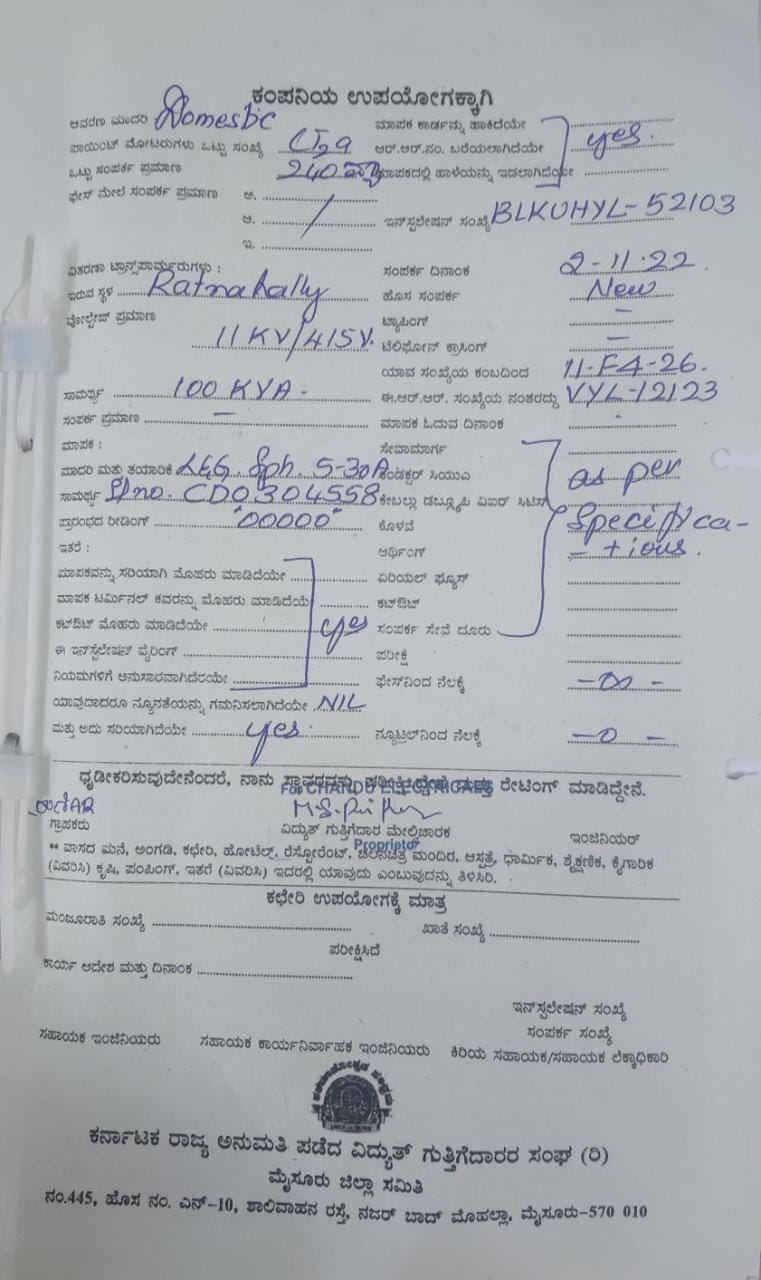 ಕಂಪನಿಯ ಉಪಯೋಗಕ್ಕಾಗಿ
ಆವರಣ ಮಾದರಿ Domestic ಮಾಪಕ ಕಾರ್ಡನ್ನು ಹಾಕಿದೆಯೇ
ಪಾಯಿಂಟ್ ಮೋಟರುಗಳು ಒಟ್ಟು ಸಂಖ್ಯೆ ಆರ್.ಆರ್.ನಂ. ಬರೆಯಲಾಗಿದೆಯೇ yes.
ಒಟ್ಟು ಸಂಪರ್ಕ ಪ್ರಮಾಣ 240 ಮಾಪಕದಲ್ಲಿ ಹಾಳೆಯನ್ನು ಇಡಲಾಗಿದೆಯೇ
ಫೇಸ್ ಮೇಲೆ ಸಂಪರ್ಕ ಪ್ರಮಾಣ ಅ.
ಆ. ಇನ್‌ಸ್ಟಲೇಷನ್ ಸಂಖ್ಯೆ BLKUHYL-52103
ಇ.
ವಿತರಣಾ ಟ್ರಾನ್ಸ್‌ಪಾರ್ಮರುಗಳು : ಸಂಪರ್ಕ ದಿನಾಂಕ 2-11-22.
ಇರುವ ಸ್ಥಳ Ratnahally ಹೊಸ ಸಂಪರ್ಕ New
ವೋಲ್ಟೇಜ್ ಪ್ರಮಾಣ ಟ್ಯಾಪಿಂಗ್ –
11 KV/415V. ಟೆಲಿಫೋನ್ ಕ್ರಾಸಿಂಗ್ –
ಯಾವ ಸಂಖ್ಯೆಯ ಕಂಬದಿಂದ 11-F4-26.
ಸಾಮರ್ಥ್ಯ 100 KVA - ಈ.ಆರ್.ಆರ್. ಸಂಖ್ಯೆಯ ನಂತರದ್ದು VYL-12123
ಸಂಪರ್ಕ ಪ್ರಮಾಣ – ಮಾಪಕ ಓದುವ ದಿನಾಂಕ
ಮಾಪಕ : ಸೇವಾಮಾರ್ಗ
ಮಾದರಿ ಮತ್ತು ತಯಾರಿಕೆ L&G. Sph. 5-30A ಕಂಡಕ್ಟರ್ ಸಿಯುವಿ as per
ಸಾಮರ್ಥ್ಯ Slno. CD0304558 ಕೇಬಲ್ಲು ಡಬ್ಲ್ಯೂಪಿ ವಿಐರ್
ಪ್ರಾರಂಭದ ರೀಡಿಂಗ್ '00000' ಕೊಳವೆ Specifica-
ಇತರೆ : ಅರ್ಥಿಂಗ್ -tious.
ಮಾಪಕವನ್ನು ಸರಿಯಾಗಿ ಮೊಹರು ಮಾಡಿದೆಯೇ ಏರಿಯಲ್ ಫ್ಯೂಸ್
ಮಾಪಕ ಟರ್ಮಿನಲ್ ಕವರನ್ನು ಮೊಹರು ಮಾಡಿದೆಯೆ ಕಟ್‌ಔಟ್
ಕಟ್‌ಔಟ್ ಮೊಹರು ಮಾಡಿದೆಯೇ yes ಸಂಪರ್ಕ ಸೇವೆ ದೂರು
ಈ ಇನ್‌ಸ್ಟಲೇಷನ್ ವೈರಿಂಗ್ ಪರೀಕ್ಷೆ
ನಿಯಮಗಳಿಗೆ ಅನುಸಾರವಾಗಿದೆರಯೇ ಫೇಸ್‌ನಿಂದ ನೆಲಕ್ಕೆ -∞-
ಯಾವುದಾದರೂ ನ್ಯೂನತೆಯನ್ನು ಗಮನಿಸಲಾಗಿದೆಯೇ NIL
ಮತ್ತು ಅದು ಸರಿಯಾಗಿದೆಯೇ yes. ನ್ಯೂಟ್ರಲ್‌ನಿಂದ ನೆಲಕ್ಕೆ -0-
ಧೃಡೀಕರಿಸುವುದೇನೆಂದರೆ, ನಾನು ಸ್ಥಾವರವನ್ನು ಪರೀಕ್ಷಿಸಿದ್ದೇನೆ ಮತ್ತು ರೇಟಿಂಗ್ ಮಾಡಿದ್ದೇನೆ.
For CHANDU ELECTRICALS
ಗ್ರಾಹಕರು ವಿದ್ಯುತ್ ಗುತ್ತಿಗೆದಾರ ಮೇಲ್ವಿಚಾರಕ ಇಂಜಿನಿಯರ್
Proprietor
** ವಾಸದ ಮನೆ, ಅಂಗಡಿ, ಕಛೇರಿ, ಹೋಟೆಲ್, ರೆಸ್ಟೋರೆಂಟ್, ಚಲನಚಿತ್ರ ಮಂದಿರ, ಆಸ್ಪತ್ರೆ, ಧಾರ್ಮಿಕ, ಶೈಕ್ಷಣಿಕ, ಕೈಗಾರಿಕ
(ವಿವರಿಸಿ) ಕೃಷಿ, ಪಂಪಿಂಗ್, ಇತರೆ (ವಿವರಿಸಿ) ಇದರಲ್ಲಿ ಯಾವುದು ಎಂಬುವುದನ್ನು ತಿಳಿಸಿರಿ.
ಕಛೇರಿ ಉಪಯೋಗಕ್ಕೆ ಮಾತ್ರ
ಮಂಜೂರಾತಿ ಸಂಖ್ಯೆ ಖಾತೆ ಸಂಖ್ಯೆ
ಪರೀಕ್ಷಿಸಿದೆ
ಕಾರ್ಯ ಆದೇಶ ಮತ್ತು ದಿನಾಂಕ
ಇನ್‌ಸ್ಟಲೇಷನ್ ಸಂಖ್ಯೆ
ಸಂಪರ್ಕ ಸಂಖ್ಯೆ
ಸಹಾಯಕ ಇಂಜಿನಿಯರು ಸಹಾಯಕ ಕಾರ್ಯನಿರ್ವಾಹಕ ಇಂಜಿನಿಯರು ಕಿರಿಯ ಸಹಾಯಕ/ಸಹಾಯಕ ಲೆಕ್ಕಾಧಿಕಾರಿ
ಕರ್ನಾಟಕ ರಾಜ್ಯ ಅನುಮತಿ ಪಡೆದ ವಿದ್ಯುತ್ ಗುತ್ತಿಗೆದಾರರ ಸಂಘ (ರಿ)
ಮೈಸೂರು ಜಿಲ್ಲಾ ಸಮಿತಿ
ನಂ.445, ಹೊಸ ನಂ. ಎನ್-10, ಶಾಲಿವಾಹನ ರಸ್ತೆ, ನಜರ್ ಬಾದ್ ಮೊಹಲ್ಲಾ, ಮೈಸೂರು-570 010